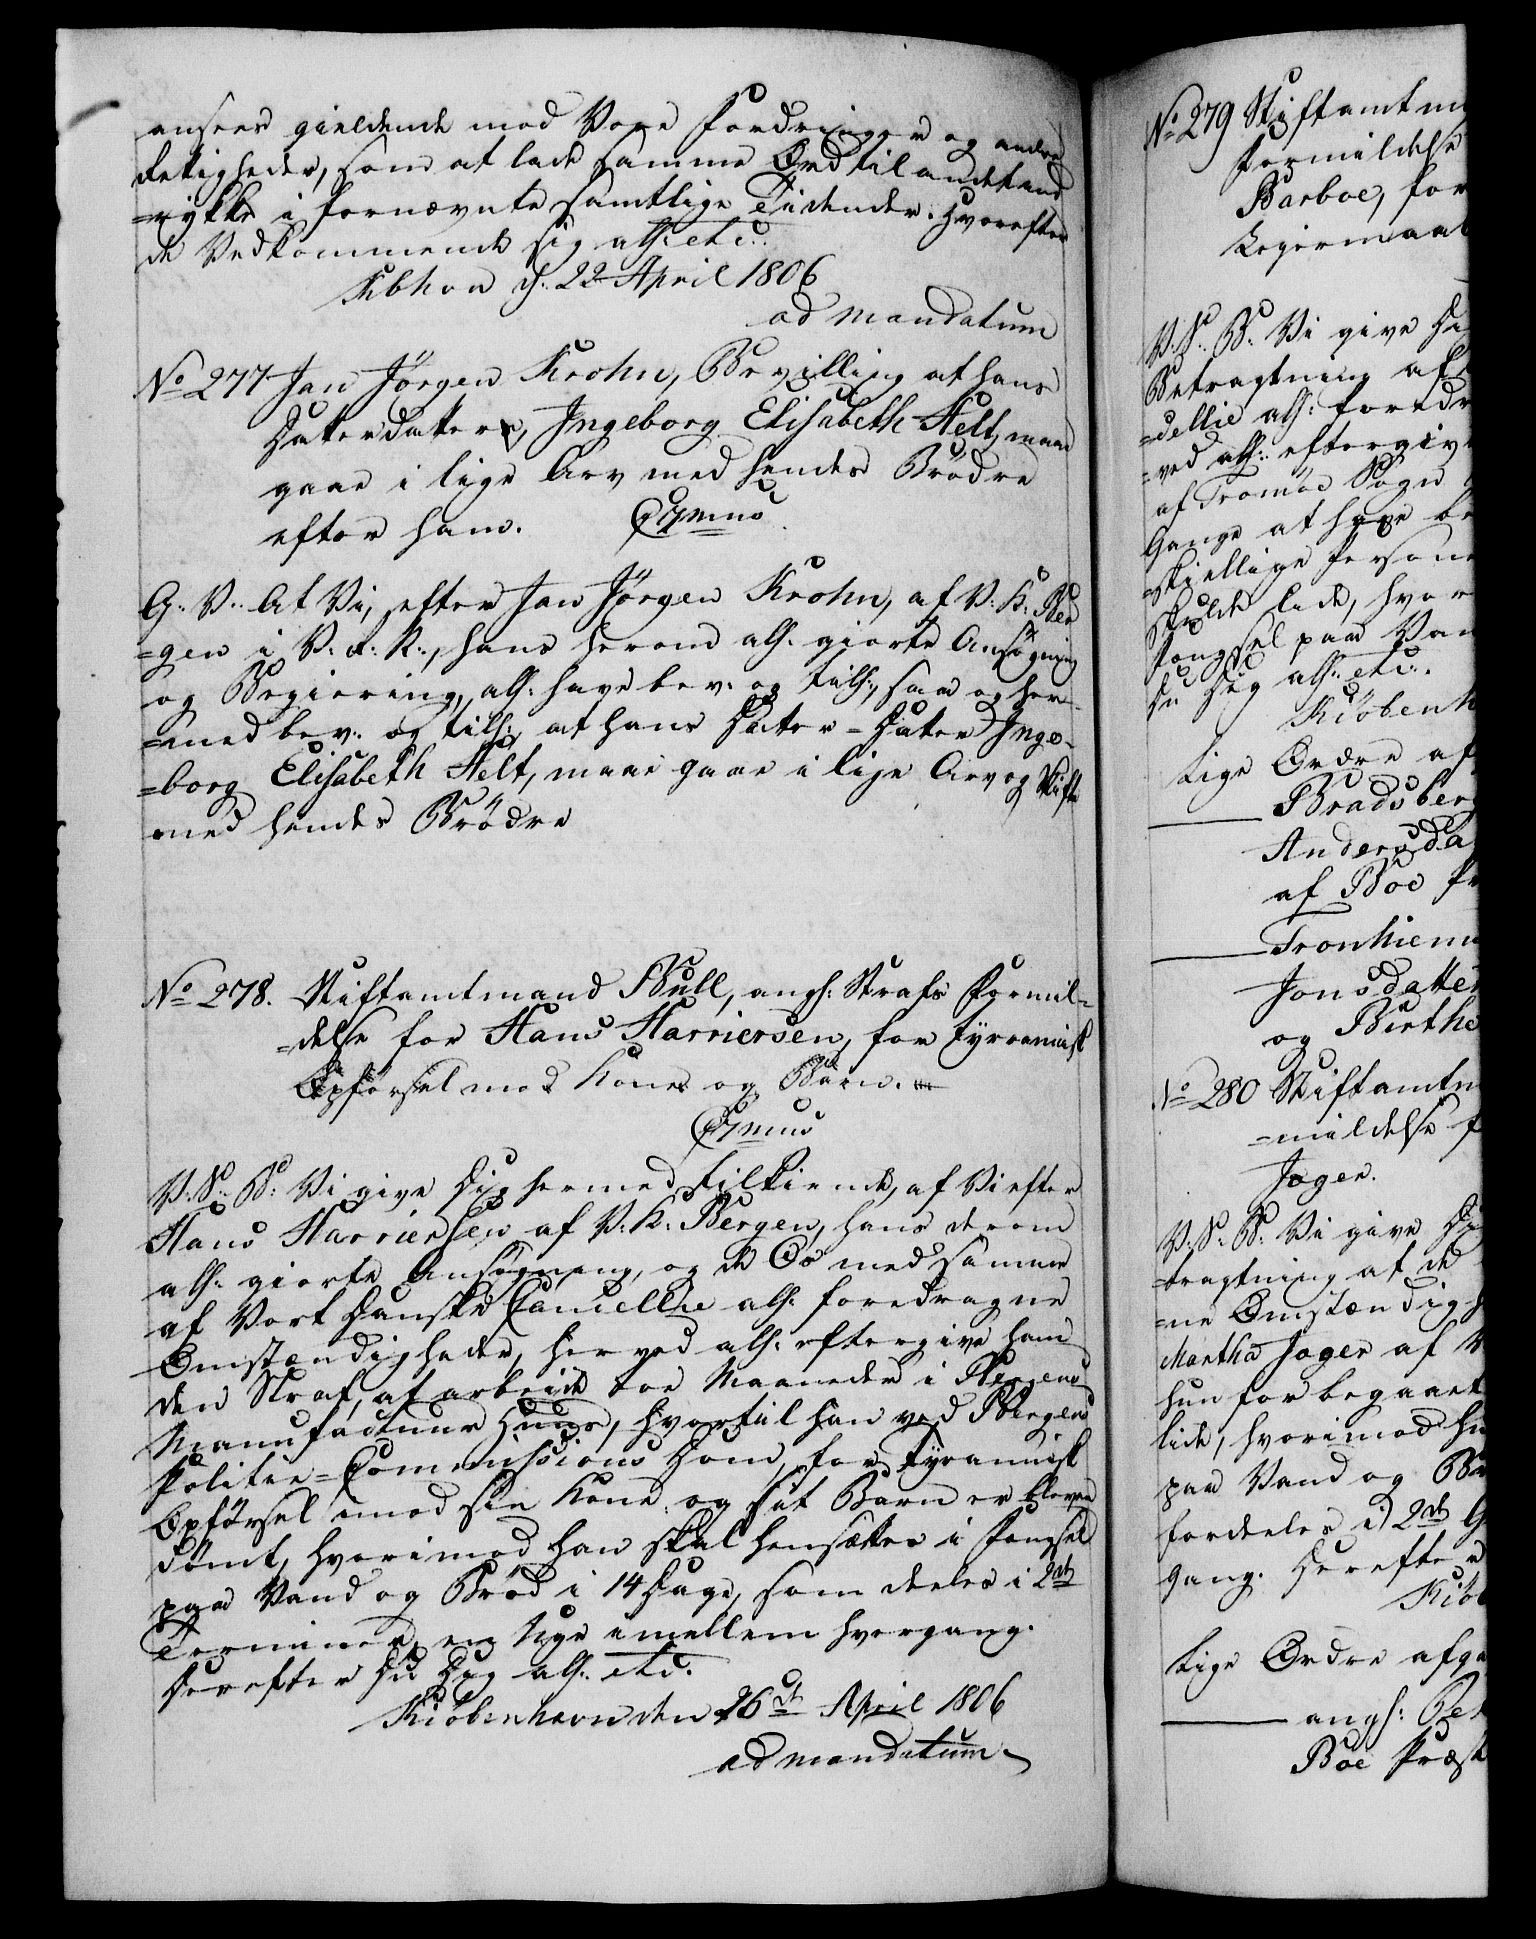 ansees gieldende mod Vore Fordringer og andre
Retigheder, som at lade samme Ord til andet ind
=rykke i fornævnte samtlige Tidender. Hvorefter
de Vedkommende sig alh: etc:.
Kbhvn d: 22 April 1806
ad mandatum
No 277 Jan Jörgen Krohn, Bevilling at hans
Daterdater, Ingeborg Elisabeth Stelt, maae
gaae i lige Arv med hendes Brödre
efter ham.
G: V: At Vi, efter Jan Jörgen Krohn, af V: K: Ber
=gen i V: R: N:, hans herom alh: giorte Ansögning
og Begiering, alh: have bev: og tilh:, saa og her-
=med bev: og tilh:, at hans Dater-Dater Inge-
=borg Elisabeth Stelt, maae gaae i lige Arv og Skifte
med hendes Brödre
No 278. Stiftamtmand Bull, angh: Strafs Formil=
=delse for Hans Harriersen, for tyrannisk
Opförsel mod Kone og Børn.
V: S: B: Vi give Dig hermed tilkiende, at Vi efter
Hans Harriersen af V: K: Bergen, hans derom
alh: giorte Ansögning, og de Os med samme
af Vort Danske Cancellie alh: foredragne
Omstændigheder, herved alh: eftergive ham
den Straf, at arbeide toe Maaneder i Bergens
Manufactuur Huus, hvortil han ved Bergens
Politie=Commissions Dom, for tyrannisk
Opförsel imod sin Kone og sit Barn er bleven
dömt, hvorimod han skal hensættes i Fængsel
paa Vand og Bröd i 14 Dage, som deeles i 2de
Terminer, en Uge imellem hvergang.
Herefter Du Dig alh: etc:.
Kiöbenhavn den 26de April 1806
ad mandatum.
No 279 Stiftamtm
Formildelse
Barboe, for
Leiermaal
V: S: B: Vi give Di
Betragtning af
=cellie alh: foredr
=ved alh: eftergiv
af Tromöe Sogn
Gange at have be
=skiellige Persone
skulde lide, hvor
Fængsel paa Van
Du Dig alh: etc:.
Kiöbenh
Lige Ordre af
Bradsberg
Andersda
af Böe Pr
Tronhiem
Jonsdatter
og Birthe
No 280 Stiftamtm
=mildelse f
Jæger.
V: S: B: Vi give Di
=tragtning af de
=ne Omstændigh
Martha Jæger af
hun for begaaet
lide, hvorimod hu
paa Vand og Br
fordeeles i 2de G
gang. Herefter
Kiöb
Lige Ordre afga
angh:
Böe Præst